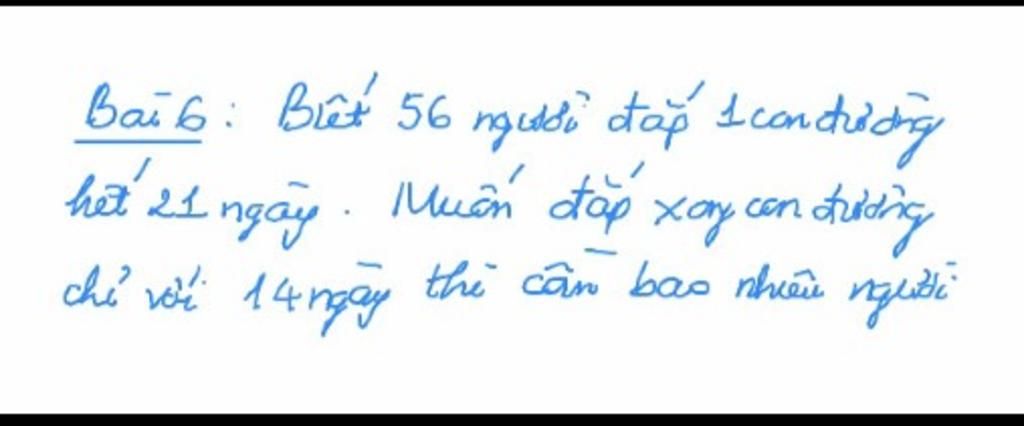 Bài 6: Biết 56 người đắp 1 con đường
hết 21 ngày. Muốn đắp xong con đường
chỉ với 14 ngày thì cần bao nhiêu người